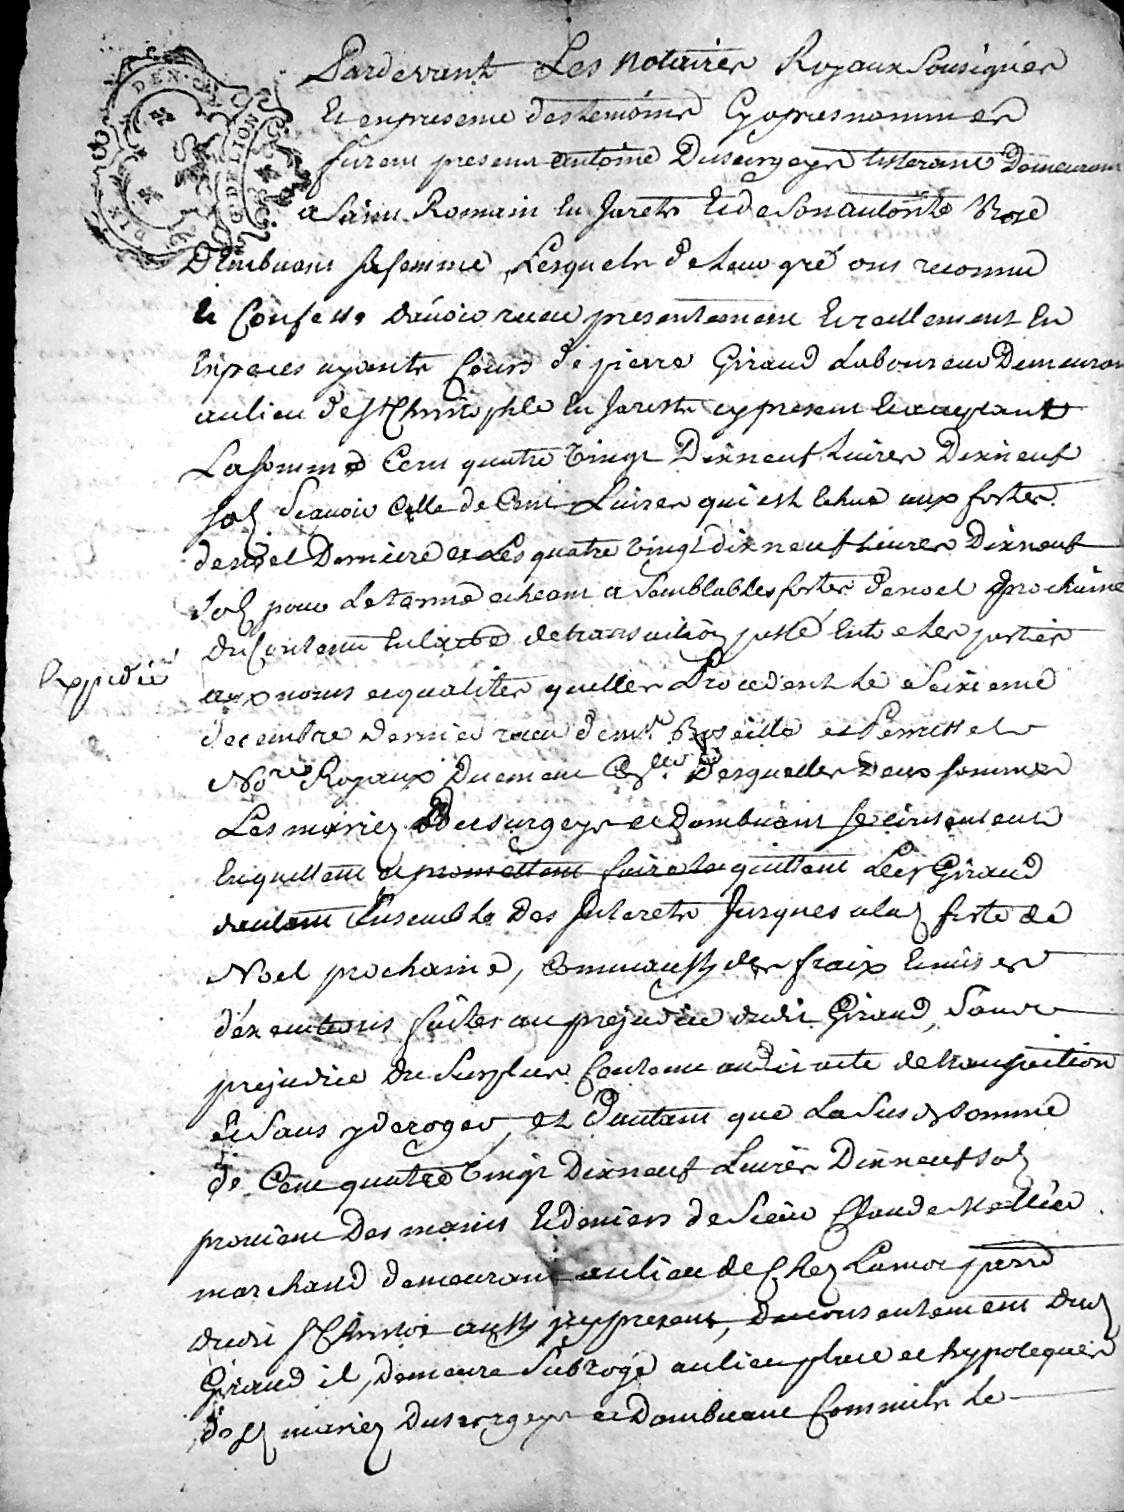 DIX. DEN. GEN. G. DE LION
Pardevant Les Notaires Royaux Sousignés
Et enpresence destemoins Cyapres nommés
furent presens antoine Dusurgeyr tisserant Demeurant
a Saint Romain En Jarets Et de Son autorité Rose
Dembuant Sa femme, Lesquels de Leur gré ont reconnu
Et Confessé D'avoir receu presentement Et reellement En
Especes ayants Cours de pierre Giraud Laboureur Demeurant
au lieu de St Christophle En Jarests cy present Et acceptant
La somme Cent quatre vingt Dixneuf Livres Dixneuf
sols Scavoir Celle de Cent Livres qui est Echue aux festes
de noel Derniere et Les quatre vingt dix neuf Livres Dixneuf
Sols pour Le terme echeant a Semblables festes de noel prochaine
Du Contenu En l'acte de transaction passé Entre les parties
aux noms et qualités qu'elles Procedent Le Seixieme
Expedié
decembre dernier receu de me. Boseille et Perrussel
No.res Royaux Desquelles Deux sommes
Les mariez Dusurgeyr et Dombuant Se contentent
En quittent et promettent faire Le quittent Led. Giraud
Ensemble Des Interets Jusques a la feste de
Noel prochaine, Comm'aussy des fraix Et mises
d'executions faites au prejudice dudit Giraud, Sans
prejudice Du Surplus Contenu audit acte de transaction
Et Sans y deroger, et D'autant que La Susd. Somme
de Cent quatre Vingt Dixneuf Livres Dixneuf Sols
provient Des mains Et deniers de Sieur Claude
marchand demeurant au lieu de Chez Lamoe parr.
dudit St Christo aussy icy present, du consentement dud.
Giraud il, Demeure Subrogé au lieu place et hypoteques
desd. mariez Dusurgeyr et Dombuant Comm'ils Le